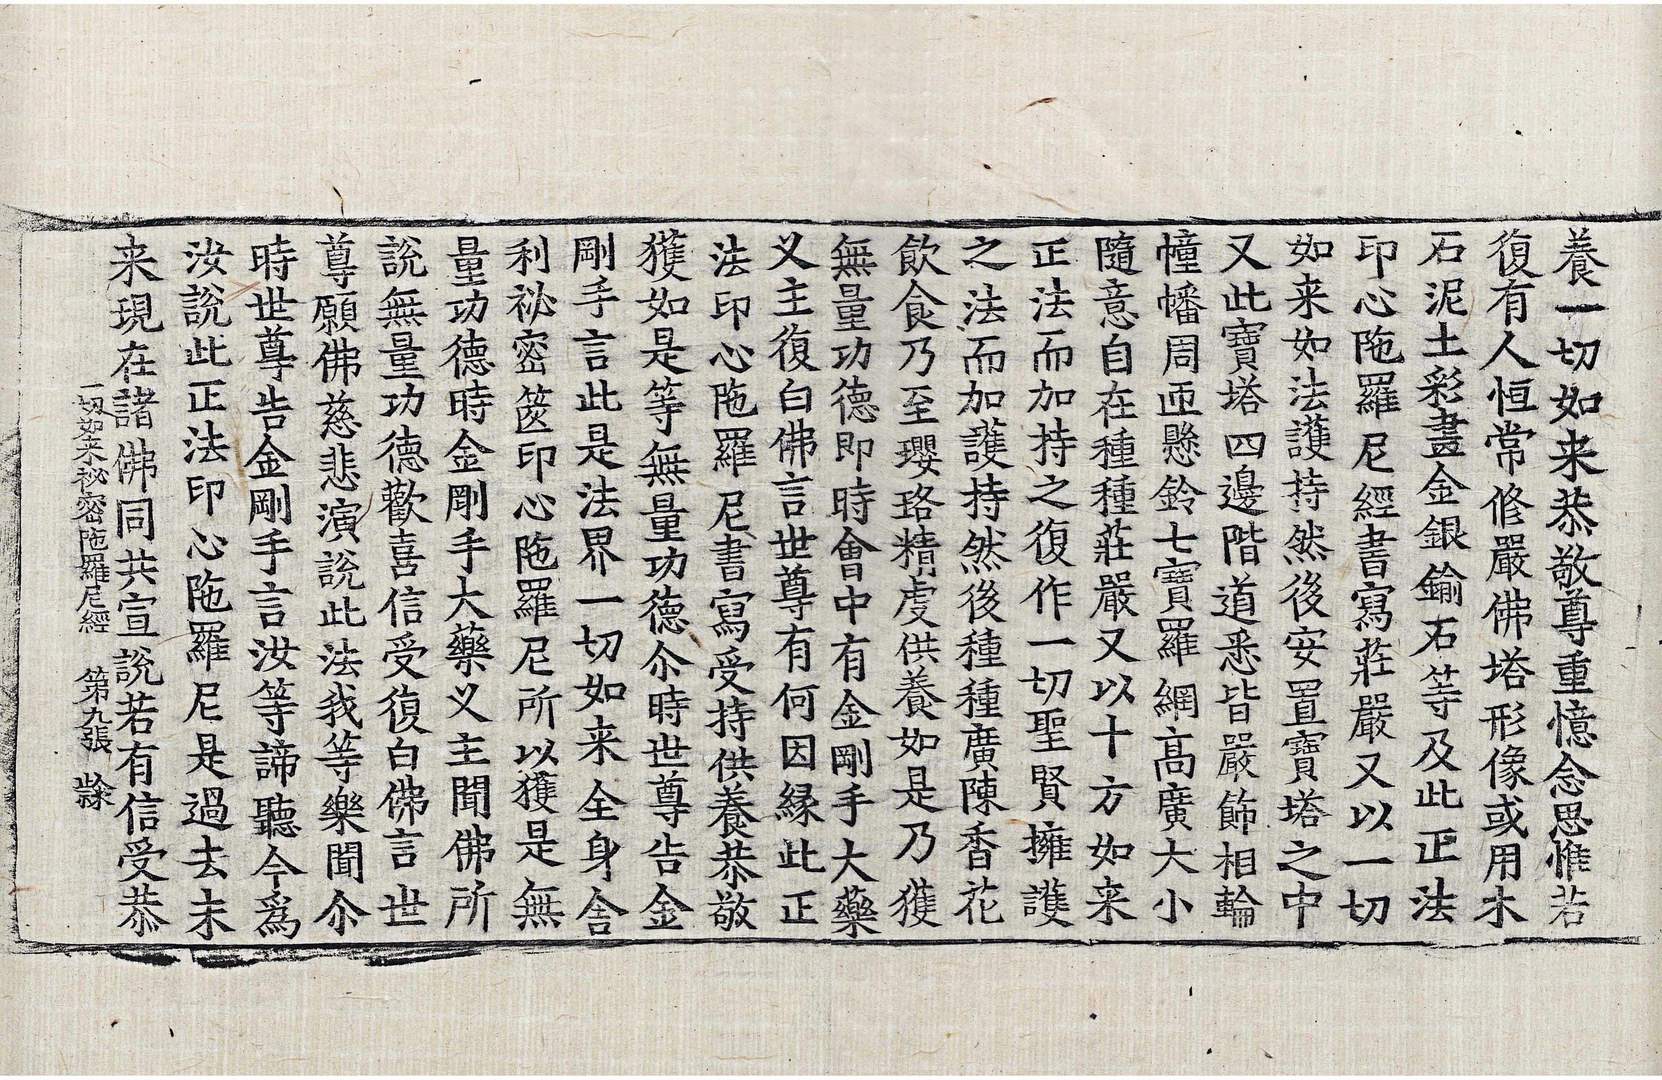 養一切如来恭敬尊重憶念思惟若
復有人恒常修嚴佛塔形像或用木
石泥土彩畫金銀鍮石等及此正法
印心陁羅尼經書寫莊嚴又以一切
如来如法護持然後安置寶塔之中
又此寶塔四邊階道悉皆嚴飾相輪
幢幡周帀懸鈴七寶羅網髙廣大小
隨意自在種種莊嚴又以十方如来
正法而加持之復作一切聖賢擁護
之法而加護持然後種種廣陳香花
飲食乃至瓔珞精虔供養如是乃獲
無量功德即時會中有金剛手大藥
义主復白佛言世尊有何因縁此正
法印心陁羅尼書寫受持供養恭敬
獲如是等無量功德尒時世尊告金
剛手言此是法界一切如来全身舍
利祕密篋印心陁羅尼所以獲是無
量功德時金剛手大藥义主聞佛所
說無量功德歡喜信受復白佛言世
尊願佛慈悲演說此法我等樂聞尒
時世尊告金剛手言汝等諦聽今爲
汝說此正法印心陁羅尼是過去未
来現在諸佛同共宣說若有信受恭
一切如来祕密陁羅尼經 第九張